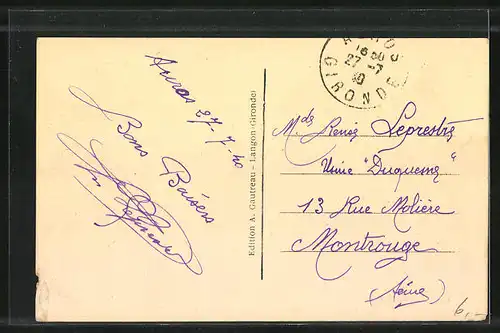 Auros 27-7-40
Bons Baisers
Edition A. Gautreau - Langon-(Gironde)
AUROS
16 30
27 -7
40
GIRONDE
Mds Renée Leprestre
Usine "Duquesne"
13 Rue Molière
Montrouge
(Seine)
6,-